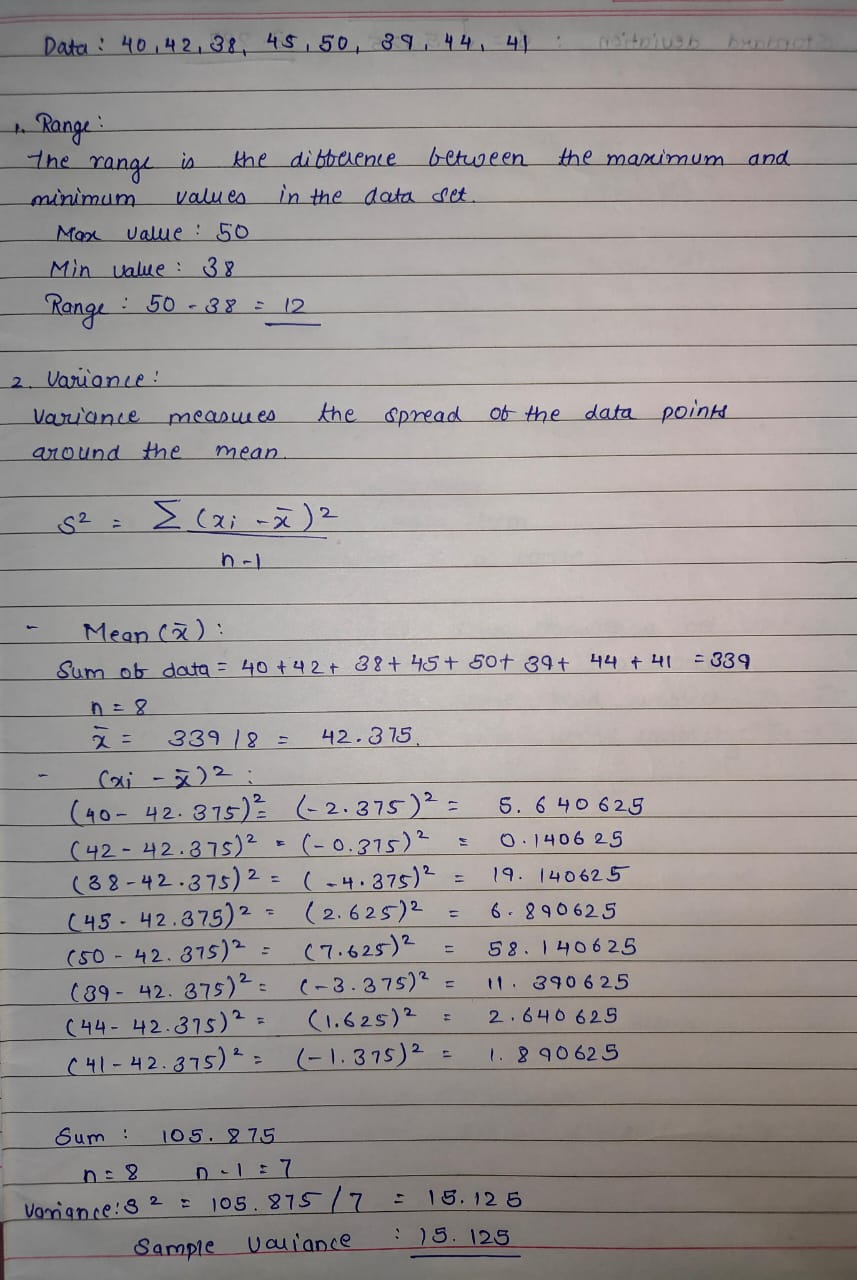 Data : 40, 42, 38, 45, 50, 39, 44, 41
1. Range :
The range is the difference between the maximum and
minimum values in the data set.
Max value : 50
Min value : 38
Range : 50 - 38 = 12
2. Variance :
Variance measures the spread of the data points
around the mean.
S² = Σ (xi - x̄)²
n-1
- Mean (x̄) :
Sum of data = 40 + 42 + 38 + 45 + 50 + 39 + 44 + 41 = 339
n = 8
x̄ = 339 / 8 = 42.375.
- (xi - x̄)² :
(40 - 42.375)² = (-2.375)² = 5.640625
(42 - 42.375)² = (-0.375)² = 0.140625
(38 - 42.375)² = (-4.375)² = 19.140625
(45 - 42.375)² = (2.625)² = 6.890625
(50 - 42.375)² = (7.625)² = 58.140625
(39 - 42.375)² = (-3.375)² = 11.390625
(44 - 42.375)² = (1.625)² = 2.640625
(41 - 42.375)² = (-1.375)² = 1.890625
Sum : 105.875
n = 8 n - 1 = 7
Variance : S² = 105.875 / 7 = 15.125
Sample Variance : 15.125